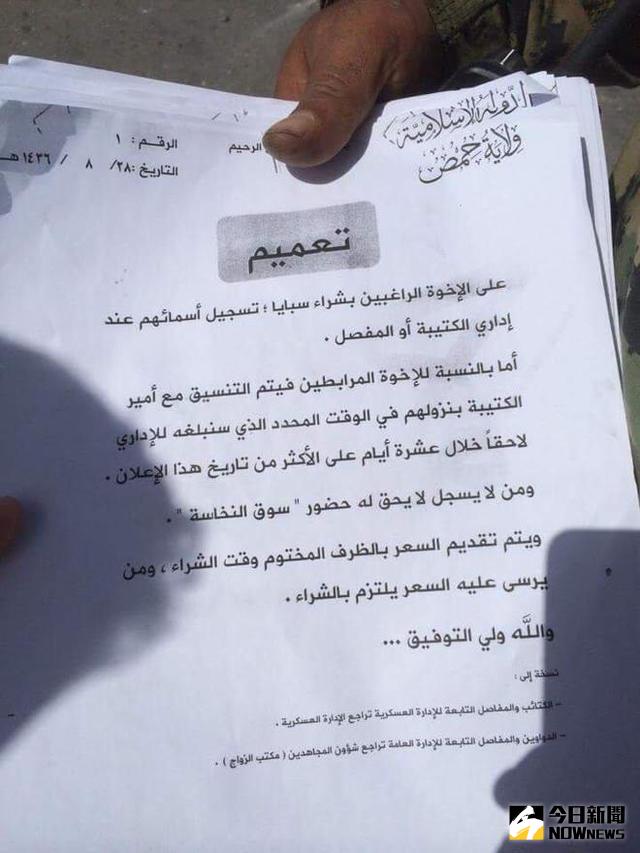 الدولة الإسلامية
ولاية حمص
الرحيم
الرقم : ١
التاريخ :٢٨/ ٨ / ١٤٣٦ هـ
تعميم
على الإخوة الراغبين بشراء سبايا ؛ تسجيل أسمائهم عند
إداري الكتيبة أو المفصل .
أما بالنسبة للإخوة المرابطين فيتم التنسيق مع أمير
الكتيبة بنزولهم في الوقت المحدد الذي سنبلغه للإداري
لاحقاً خلال عشرة أيام على الأكثر من تاريخ هذا الإعلان .
ومن لا يسجل لا يحق له حضور " سوق النخاسة " .
ويتم تقديم السعر بالظرف المختوم وقت الشراء ، ومن
يرسى عليه السعر يلتزم بالشراء .
واللَّه ولي التوفيق ...
نسخة إلى :
- الكتائب والمفاصل التابعة للإدارة العسكرية تراجع الإدارة العسكرية .
- الدواوين والمفاصل التابعة للإدارة العامة تراجع شؤون المجاهدين ( مكتب الزواج ) .
今日新聞
NOWNEWS